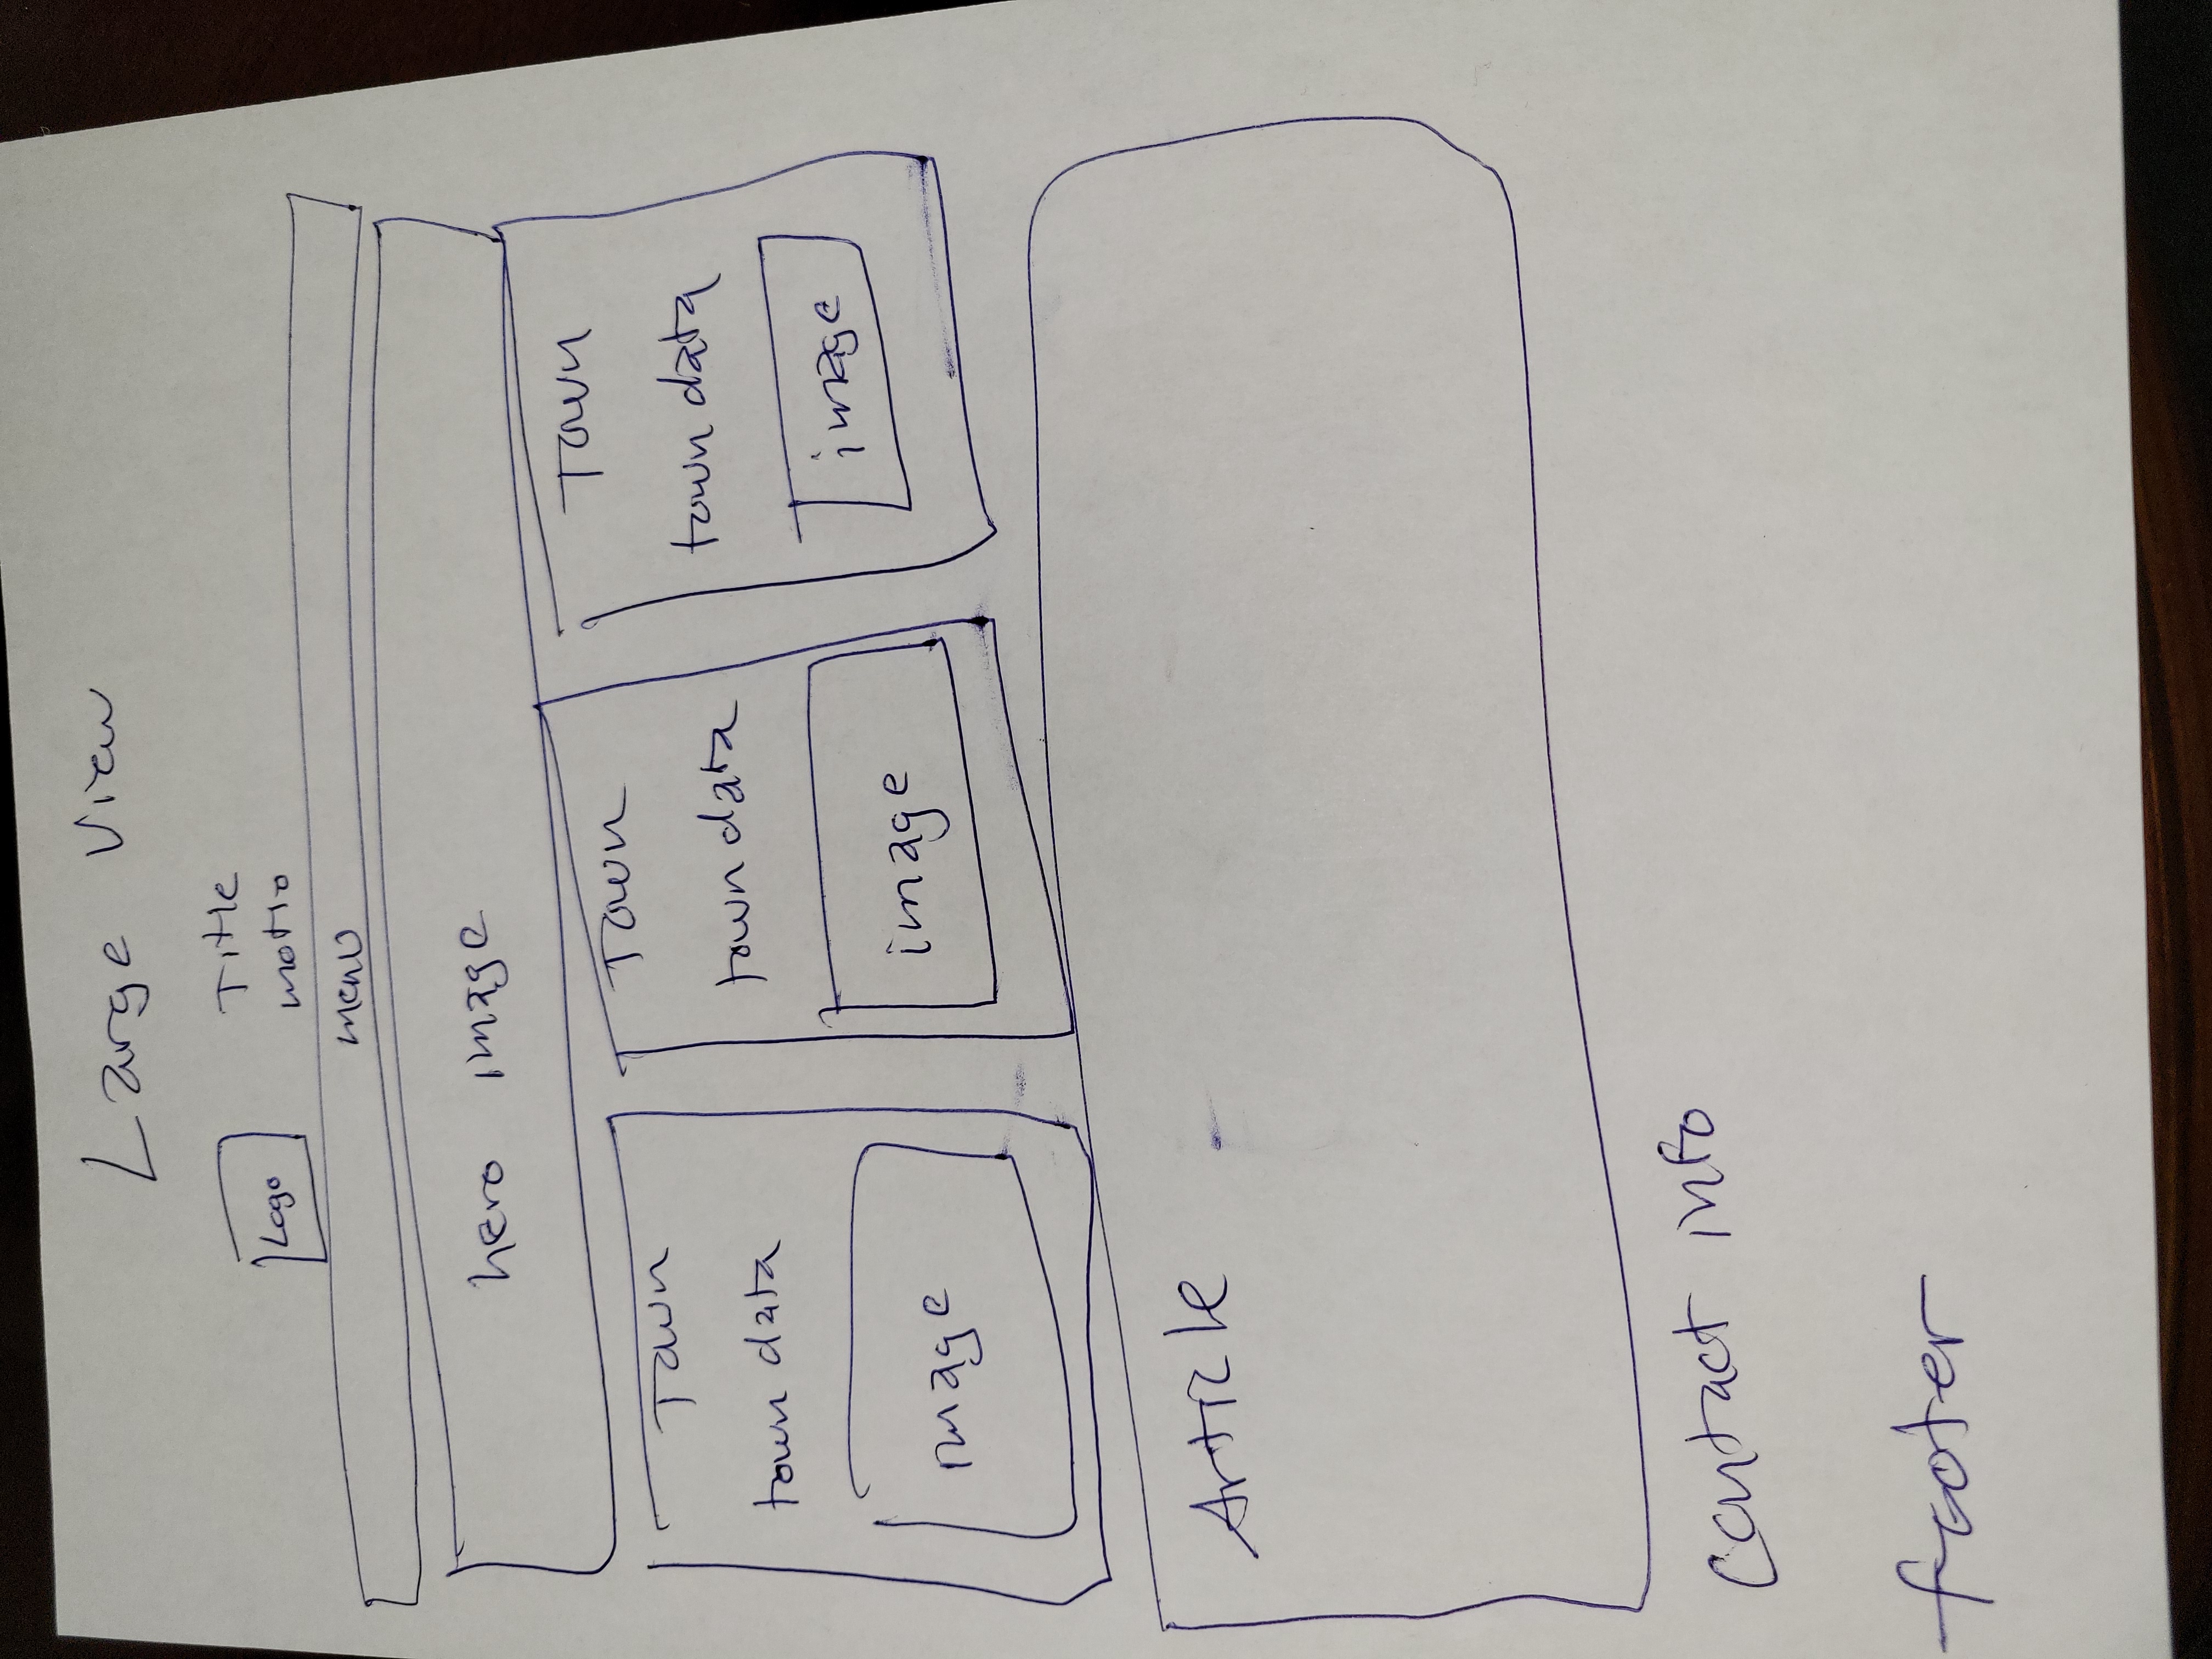 Large View
Logo
Title
motto
menu
hero image
Town
town data
image
Town
town data
image
Town
town data
image
Article
contact info
footer